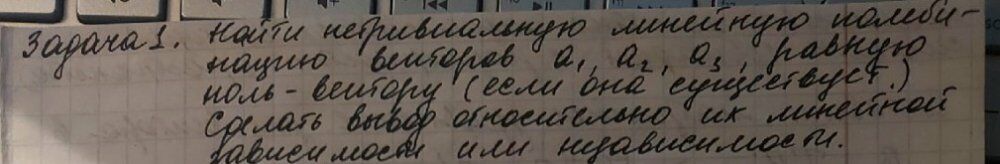 Задача 1. Найти нетривиальную линейную комби-
нацию векторов a₁, a₂, a₃, равную
ноль-вектору (если она существует.)
Сделать вывод относительно их линейной
зависимости или независимости.